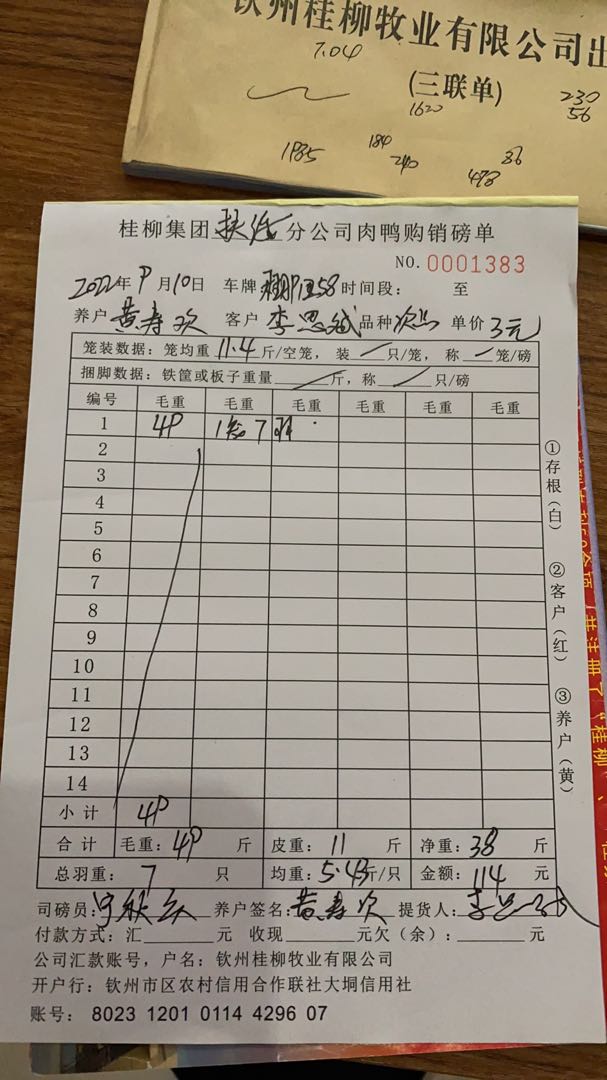 钦州桂柳牧业有限公司出
7.04
(三联单)
1620
230
56
1985
184
240
36
493
桂柳集团扶绥分公司肉鸭购销磅单
NO.0001383
2022年9月10日 车牌 时间段： 至
养户 黄寿欢 客户 李思斌 品种 次鸟 单价 3元
笼装数据：笼均重11.4斤/空笼，装 只/笼，称 笼/磅
捆脚数据：铁筐或板子重量 斤，称 只/磅
编号 毛重 毛重 毛重 毛重 毛重 毛重
1 49 1笼7羽
2
3
4
5
6
7
8
9
10
11
12
13
14
小计 49
合计 毛重：49斤 皮重：11斤 净重：38斤
总羽重：7只 均重：5.43斤/只 金额：114元
司磅员： 养户签名：黄寿欢 提货人：李思斌
付款方式：汇 元 收现 元欠（余）： 元
公司汇款账号，户名：钦州桂柳牧业有限公司
开户行：钦州市区农村信用合作联社大垌信用社
账号：8023 1201 0114 4296 07
①存根（白）
②客户（红）
③养户（黄）